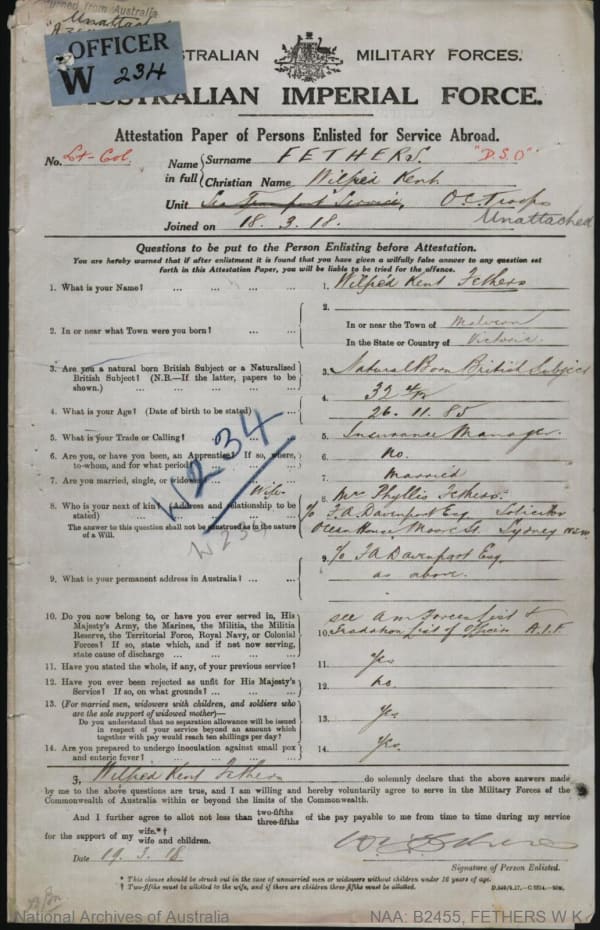 Returned from Australia
Unattach
OFFICER
W 234
AUSTRALIAN MILITARY FORCES.
AUSTRALIAN IMPERIAL FORCE.
Attestation Paper of Persons Enlisted for Service Abroad.
No. Lt-Col. Name in full Surname FETHERS. "D.S.O"
Christian Name Wilfred Kent
Unit Sea Transport Service, O.C. Troops
Unattached
Joined on 18.3.18.
Questions to be put to the Person Enlisting before Attestation.
You are hereby warned that if after enlistment it is found that you have given a wilfully false answer to any question set
forth in this Attestation Paper, you will be liable to be tried for the offence.
1. What is your Name? ... ... ... ... 1. Wilfred Kent Fethers
2. In or near what Town were you born? ... ... 2. In or near the Town of Malvern
In the State or Country of Victoria
3. Are you a natural born British Subject or a Naturalized
British Subject? (N.B.—If the latter, papers to be
shown.) ... ... ... 3. Natural Born British Subject
4. What is your Age? (Date of birth to be stated) ... 4. 32 4/12
26.11.85
5. What is your Trade or Calling? ... ... 5. Insurance Manager.
6. Are you, or have you been, an Apprentice? If so, where,
to whom, and for what period? ... ... 6. no.
7. Are you married, single, or widower? ... 7. married
8. Who is your next of kin? (Address and relationship to be
stated) ... ... Wife 8. Mrs Phyllis Fethers.
C/o F.A. Davenport Esq Solicitor
Ocean House Moore St. Sydney N.S.W
The answer to this question shall not be construed as in the nature
of a Will.
W 234
W 234
9. What is your permanent address in Australia? ... ... 9. C/o F A Davenport Esq
as above.
10. Do you now belong to, or have you ever served in, His
Majesty's Army, the Marines, the Militia, the Militia
Reserve, the Territorial Force, Royal Navy, or Colonial
Forces? If so, state which, and if not now serving,
state cause of discharge ... ... ... 10. see Am Forces List &
Gradation List of Officers A.I.F
11. Have you stated the whole, if any, of your previous service? 11. Yes
12. Have you ever been rejected as unfit for His Majesty's
Service? If so, on what grounds? ... ... 12. no.
13. (For married men, widowers with children, and soldiers who
are the sole support of widowed mother)—
Do you understand that no separation allowance will be issued
in respect of your service beyond an amount which
together with pay would reach ten shillings per day? 13. Yes
14. Are you prepared to undergo inoculation against small pox
and enteric fever? ... ... ... 14. Yes.
I, Wilfred Kent Fethers do solemnly declare that the above answers made
by me to the above questions are true, and I am willing and hereby voluntarily agree to serve in the Military Forces of the
Commonwealth of Australia within or beyond the limits of the Commonwealth.
And I further agree to allot not less than two-fifths three-fifths of the pay payable to me from time to time during my service
for the support of my wife.*† wife and children.
Date 19.3.18
Signature of Person Enlisted.
* This clause should be struck out in the case of unmarried men or widowers without children under 16 years of age.
† Two-fifths must be allotted to the wife, and if there are children three-fifths must be allotted.
National Archives of Australia
NAA: B2455, FETHERS W K